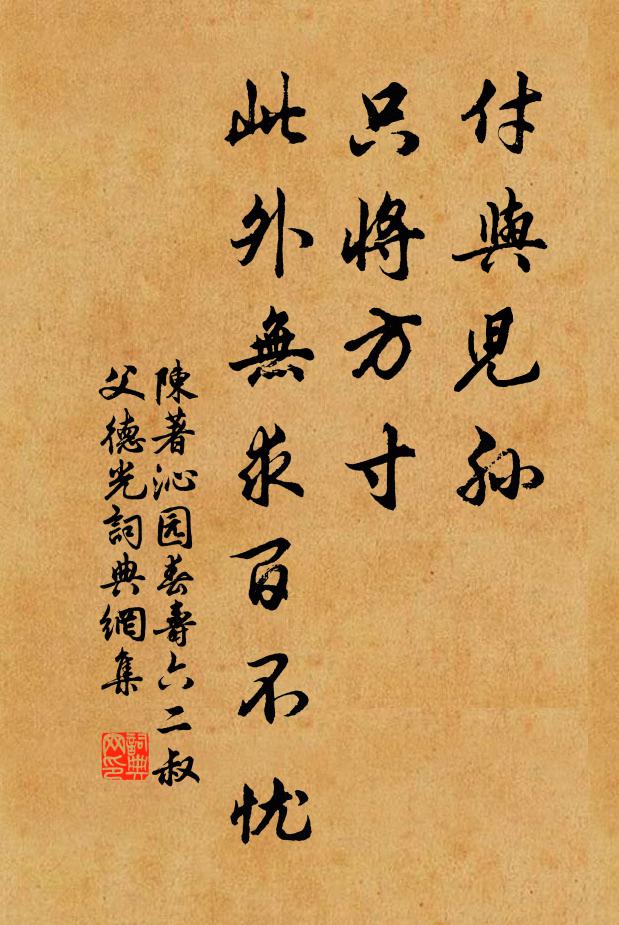 付與児孫
只將方寸
此外無求百不忧
陳著沁园春壽六二叔
父德光詞典網集
詞典
网印